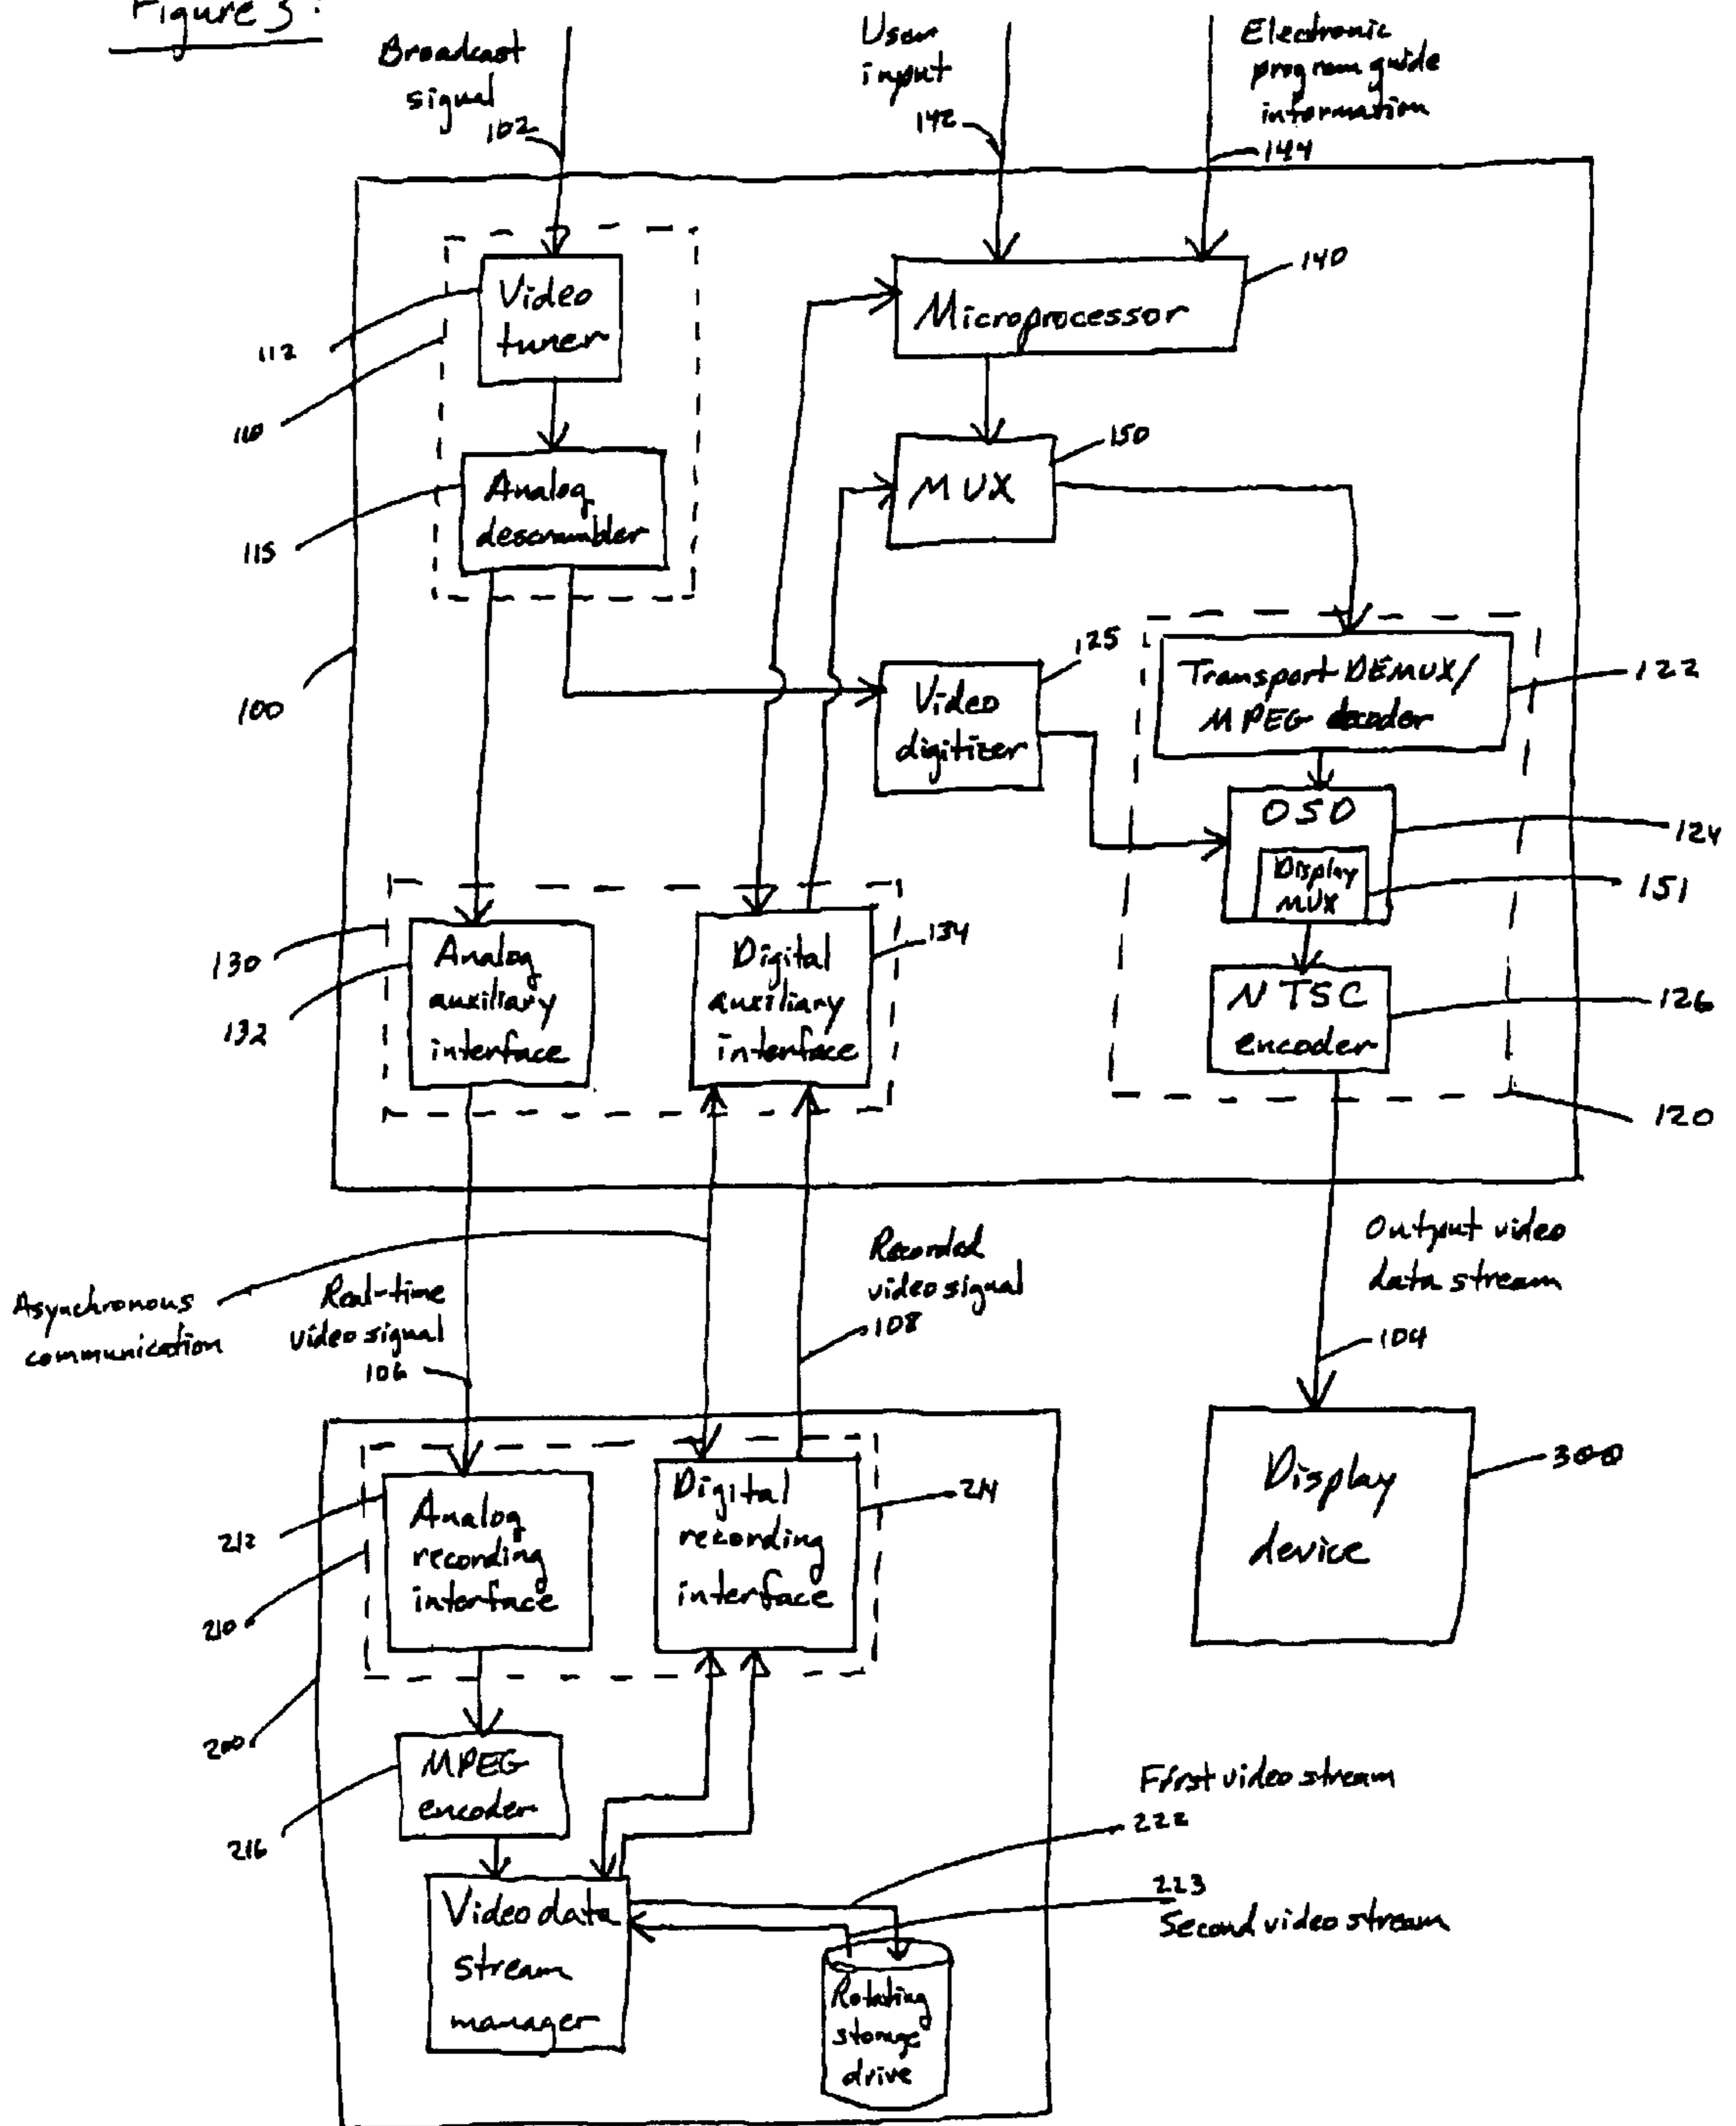 Figure 3:
Broadcast
signal
102
User
input
142
Electronic
program guide
information
144
Video
tuner
112
110
Microprocessor
140
Analog
descrambler
115
MUX
150
100
Video
digitizer
125
Transport DEMUX/
MPEG decoder
122
OSD
124
Display
MUX
151
NTSC
encoder
126
120
130
132
Analog
auxiliary
interface
Digital
auxiliary
interface
134
Asynchronous
communication
Real-time
video signal
106
Recorded
video signal
108
Output video
data stream
104
Display
device
300
212
210
Analog
recording
interface
Digital
recording
interface
214
200
MPEG
encoder
216
Video data
stream
manager
First video stream
222
223
Second video stream
Rotating
storage
drive